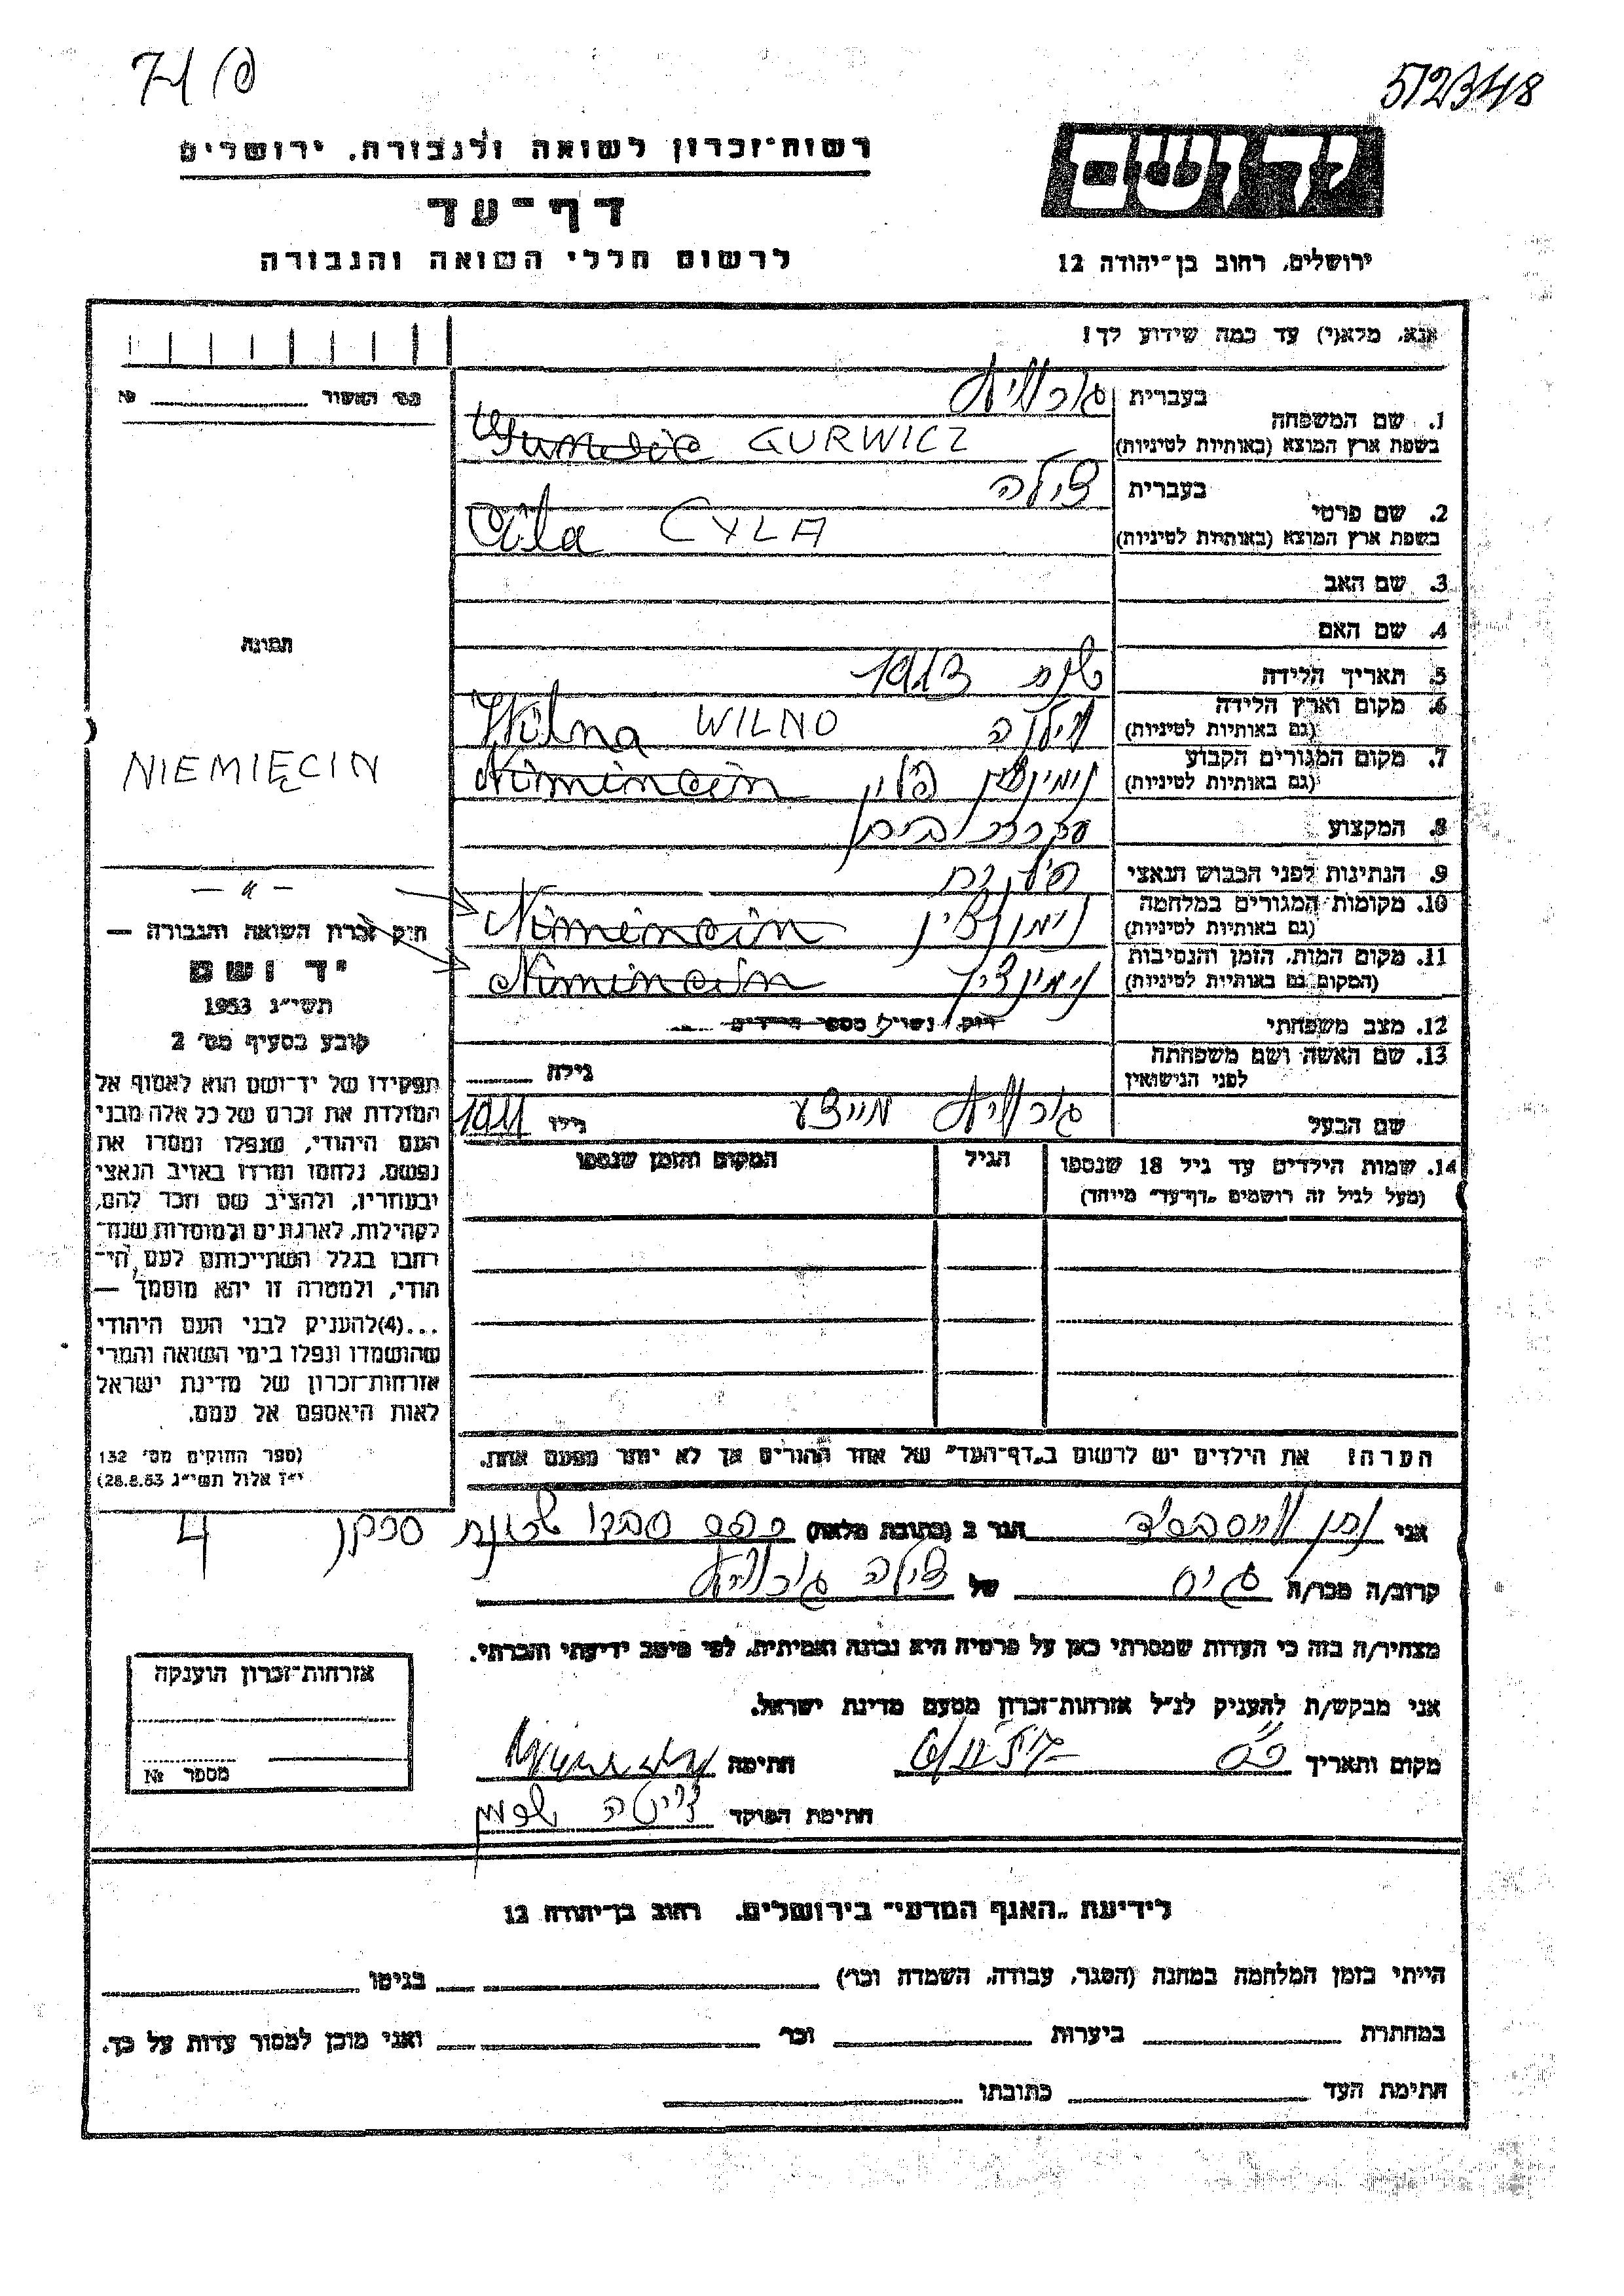 512348
יד ושם
רשות־זכרון לשואה ולגבורה, ירושלים
דף־עד
לרשום חללי השואה והגבורה
ירושלים, רחוב בן־יהודה 12
אנא, מלא(י) עד כמה שידוע לך!
מס׳ האשור № 
1. שם המשפחה בעברית גורוויץ
בשפת ארץ המוצא (באותיות לטיניות) GURWICZ
2. שם פרטי בעברית צילה
בשפת ארץ המוצא (באותיות לטיניות) Cila CYLA
3. שם האב
4. שם האם
תמונה
5. תאריך הלידה שנת 1913
6. מקום וארץ הלידה (גם באותיות לטיניות) וילנה WILNO Wilna
7. מקום המגורים הקבוע (גם באותיות לטיניות) נימינצין פולין Niminein
NIEMIĘCIN
8. המקצוע עקרת בית
9. הנתינות לפני הכבוש הנאצי פולנית
10. מקומות המגורים במלחמה (גם באותיות לטיניות) נימנצין Niminein
11. מקום המות, הזמן והנסיבות (המקום גם באותיות לטיניות) נימינצין Niminein
12. מצב משפחתי רווק / נשוי מספר הילדים
13. שם האשה ושם משפחתה לפני הנישואין גילה
שם הבעל גורוויץ גילו 1911
14. שמות הילדים עד גיל 18 שנספו הגיל המקום והזמן שנספו
(מעל לגיל זה רושמים „דף־עד״ מיוחד)
חוק זכרון השואה והגבורה —
יד ושם
תשי״ג 1953
קובע בסעיף מס׳ 2
תפקידו של יד־ושם הוא לאסוף אל
המולדת את זכרם של כל אלה מבני
העם היהודי, שנפלו ומסרו את
נפשם, נלחמו ומרדו באויב הנאצי
ובעוזריו, ולהציב שם וזכר להם,
לקהילות, לארגונים ולמוסדות שנח־
רבו בגלל השתייכותם לעם הי־
הודי, ולמטרה זו יהא מוסמך —
...(4) להעניק לבני העם היהודי
שהושמדו ונפלו בימי השואה והמרי
אזרחות־זכרון של מדינת ישראל
לאות היאספם אל עמם.
(ספר החוקים מס׳ 132
י״ז אלול תשי״ג 28.8.53)
הערה! את הילדים יש לרשום ב„דף־העד״ של אחד ההורים אך לא יותר מפעם אחת.
אני נתן הגר ב (כתובת מלאה) 4
קרוב/ה מכר/ה גיס של צילה גורוויץ
מצהיר/ה בזה כי העדות שמסרתי כאן על פרטיה היא נכונה ואמיתית, לפי מיטב ידיעתי והכרתי.
אני מבקש/ת להעניק לנ״ל אזרחות־זכרון מטעם מדינת ישראל.
מקום ותאריך חתימה
חתימת הפוקד
אזרחות־זכרון הוענקה
מספר №
לידיעת „האגף המדעי״ בירושלים, רחוב בן־יהודה 12
הייתי בזמן המלחמה במחנה (הסגר, עבודה, השמדה וכר׳) בגיטו
במחתרת ביערות וכר׳ ואני מוכן למסור עדות על כך.
חתימת העד כתובתו